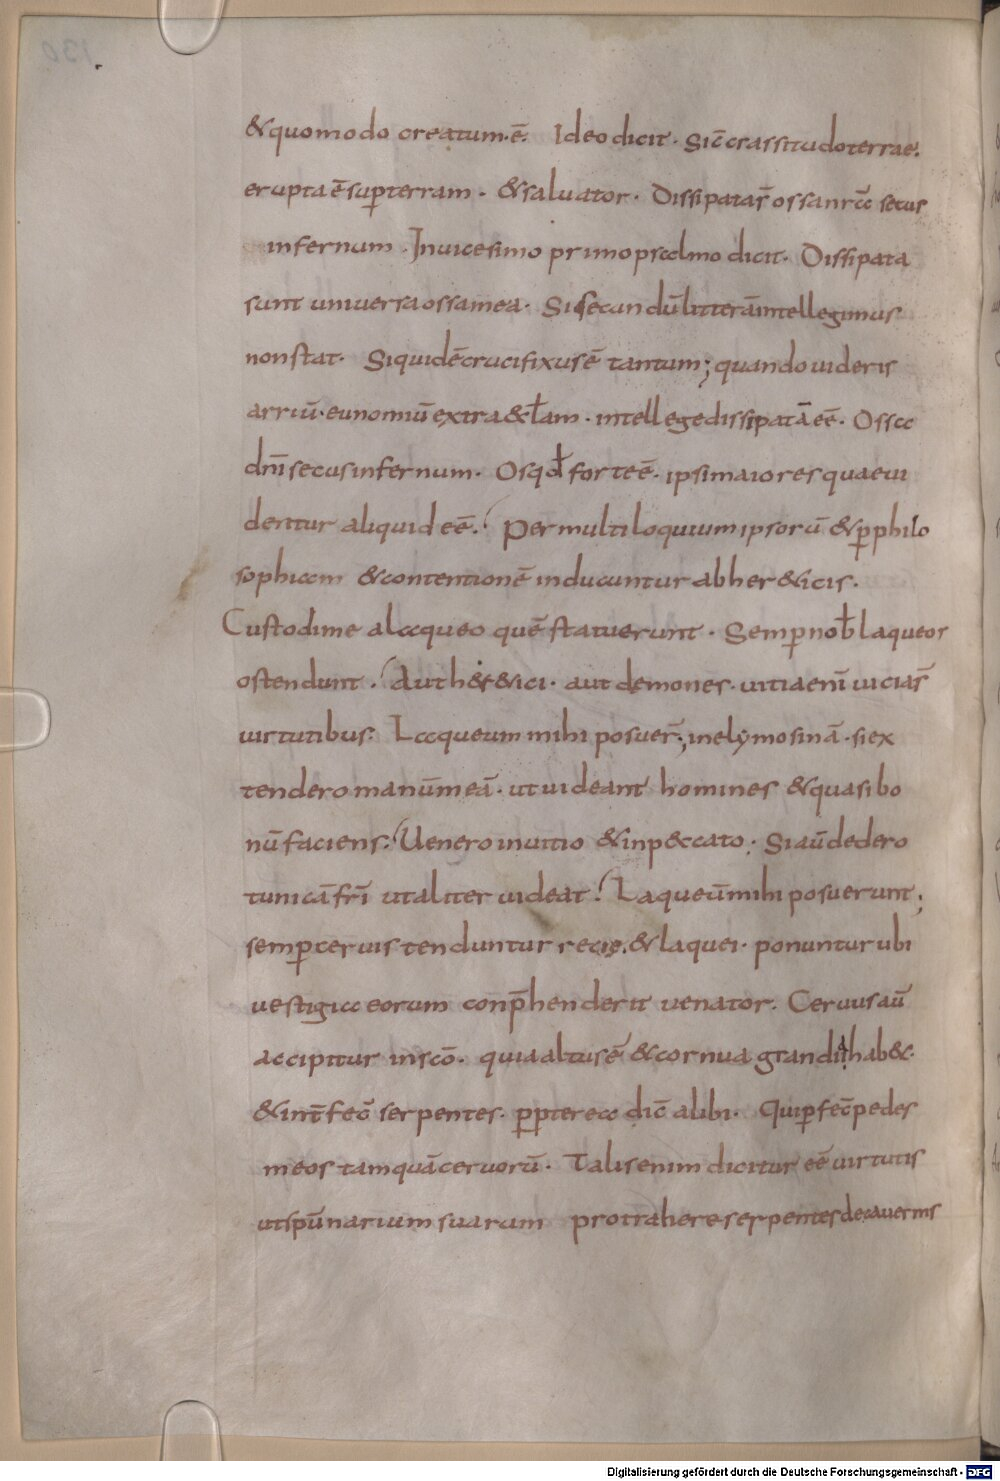 &quomodo creatum·ē· Ideo dicit· Sic̄ crassitudo terrae·
erupta ē sup̄ terram· & saluator· Dissipatas̄ ossa nr̄a secus
infernum· In uicesimo primo psalmo dicit· Dissipata
sunt uniuersa ossa mea· Si secundū litterā intellegimus
non stat· Siquidē crucifixus ē tantum; quando uideris
arriū· eunomiū extra &cl̄am· intellege dissipatā eē· Ossa
dnī secus infernum· Os qđ forte ē· ipsi maiores quae ui
dentur aliquid eē· Per multiloquium ipsorū & ꝑ philo
sophiam & contentionē inducuntur ab her&icis·
Custodi me a laqueo quē statuerunt· Semper nob̄ laqueos
ostendunt· Aut her&ici· aut demones· uitia enī uicias̄
uirtutibus· Laqueum mihi posuer̄; in elymosinā· si ex
tendero manū meā· ut uideant homines & quasi bo
nū faciens· Uenero in uitio & in peccato· Si aū dedero
tunicā frī ut aliter uideat· Laqueū mihi posuerunt;
semp̄ ceruis tenduntur recię· & laquei· ponuntur ubi
uestigia eorum conp̄henderit uenator· Ceruus aū
accipitur in scō· quia altus ē & cornua grandia hab&·
& int̄fec̄ serpentes· ꝓpterea dic̄ alibi· Qui ꝑfec̄ pedes
meos tamquā ceruorū· Talis enim dicitur eē uirtutis
ut spū narium suarum protrahere serpentes de cauernis
Digitalisierung gefördert durch die Deutsche Forschungsgemeinschaft - DFG